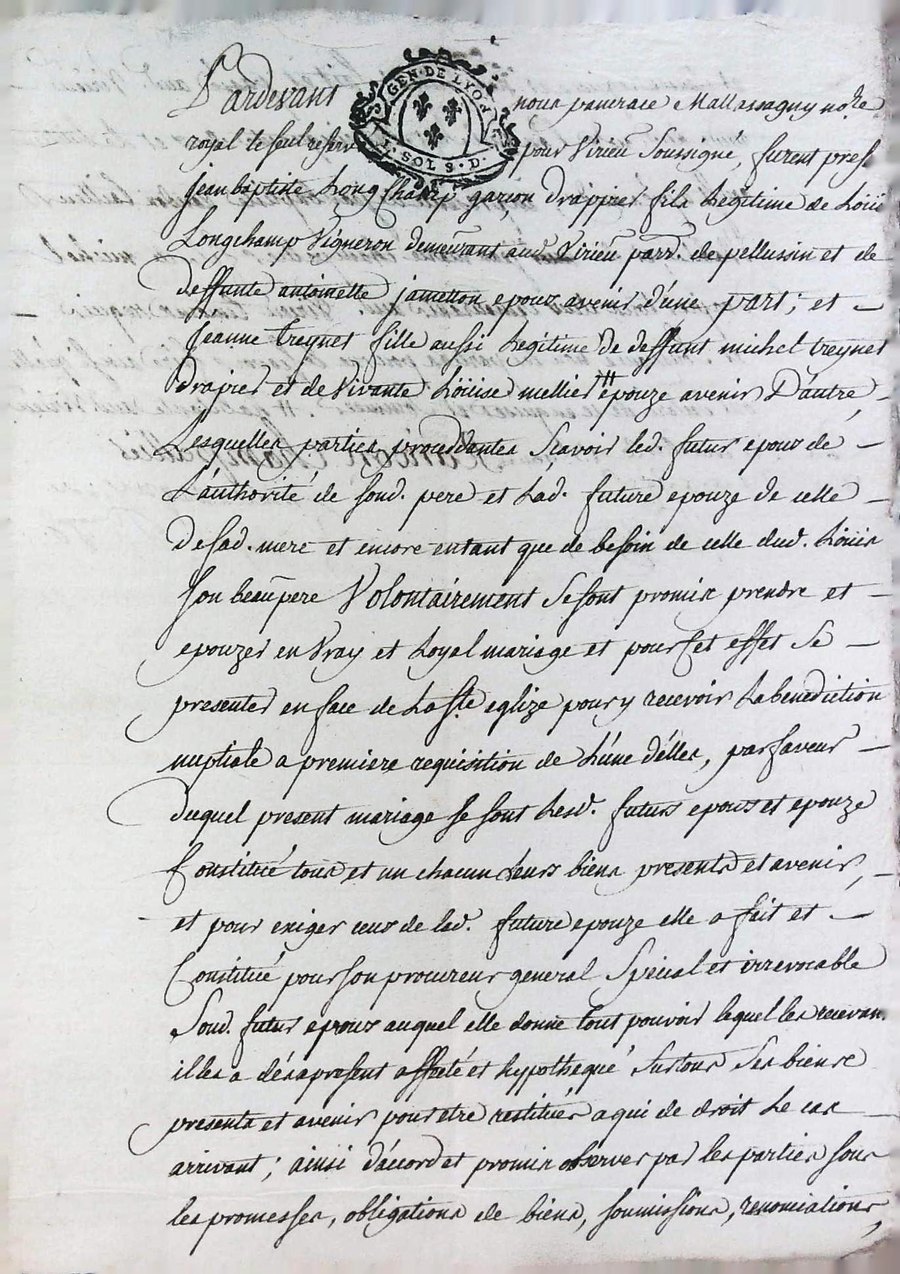 GEN · DE LYON
1 · SOL 8 · D ·
Pardevant nous pancrace Mallassagny no.re
royal le seul reservé pour Virieu soussigné, furent pres.
jean baptiste Longchamp garçon drappier fils Legitime de Loüis
Longchamp Vigneron demeurant aud. Virieu parr. de pellussin et de
deffunte antoinette jametton epoux avenir d'une part; et —
jeanne treynet fille aussi Legitime de deffunt michel treynet
drapier et de Vivante Loüise mellier # epouze avenir D'autre,
Lesquelles parties procedantes sçavoir led. futur epoux de —
L'authorité de sond. pere et Lad. future epouze de celle —
De sad. mere et encore entant que de besoin de celle dud. Loüis
son beau pere Volontairement se sont promis prendre et —
epouzer en Vray et Loyal mariage et pour cet effet se —
presenter en face de La ste eglize pour y recevoir La benediction
nuptiale a premiere requisition de L'une d'elles, par faveur —
duquel present mariage se sont Lesd. futurs epoux et epouze
Constitué tous et un chacun Leurs biens presents et avenir, —
et pour exiger ceux de lad. future epouze elle a fait et —
Constitué pour son procureur general special et irrevocable
Sond. futur epoux auquel elle donne tout pouvoir lequel les recevan.
illes a désapresent affecté et hypothequé sur tous ses biens
presents et avenir pour etre restitués a qui de droit Le cas —
arrivant; ainsi d'accord et promis observer par les parties sous
les promesses, obligations de biens, soumissions, renonciations,